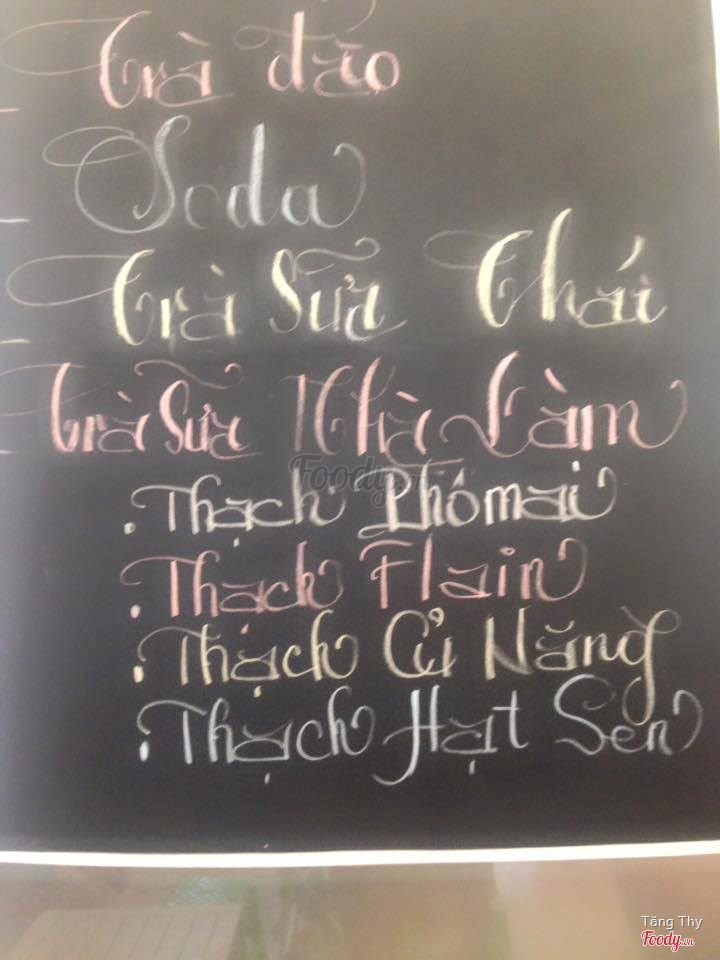 Trà đào
Soda
Trà Sữa Thái
Trà Sữa Nhà Làm
Foody.vn
. Thạch Phômai
. Thạch Flain
. Thạch Củ Năng
. Thạch Hạt Sen
Tăng Thy
Foody.vn